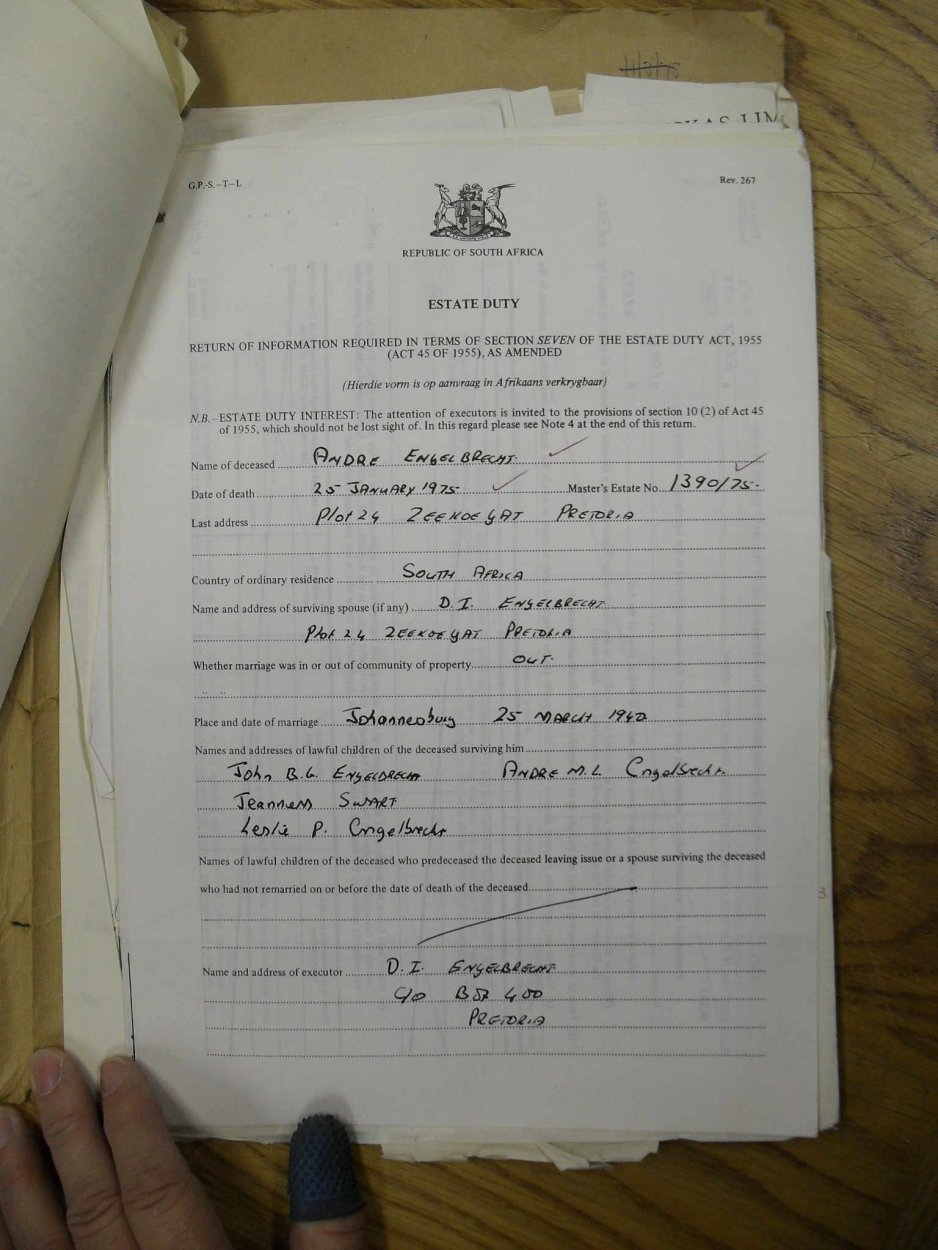 G.P.-S.-T-L
Rev. 267
REPUBLIC OF SOUTH AFRICA
ESTATE DUTY
RETURN OF INFORMATION REQUIRED IN TERMS OF SECTION SEVEN OF THE ESTATE DUTY ACT, 1955
(ACT 45 OF 1955), AS AMENDED
(Hierdie vorm is op aanvraag in Afrikaans verkrygbaar)
N.B.-ESTATE DUTY INTEREST: The attention of executors is invited to the provisions of section 10 (2) of Act 45
of 1955, which should not be lost sight of. In this regard please see Note 4 at the end of this return.
Name of deceased ANDRE ENGELBRECHT.
Date of death 25 JANUARY 1975 Master's Estate No. 1390/75.
Last address Plot 24 ZEEKOEGAT PRETORIA
Country of ordinary residence SOUTH AFRICA
Name and address of surviving spouse (if any) D.I. ENGELBRECHT
Plot 24 ZEEKOEGAT PRETORIA
Whether marriage was in or out of community of property OUT.
Place and date of marriage Johannesburg 25 MARCH 1940
Names and addresses of lawful children of the deceased surviving him
John B.G. ENGELBRECHT ANDRE M.L. Engelbrecht.
SWART
Leslie P. Engelbrecht
Names of lawful children of the deceased who predeceased the deceased leaving issue or a spouse surviving the deceased
who had not remarried on or before the date of death of the deceased
Name and address of executor D.I. ENGELBRECHT
Box 400
PRETORIA
3